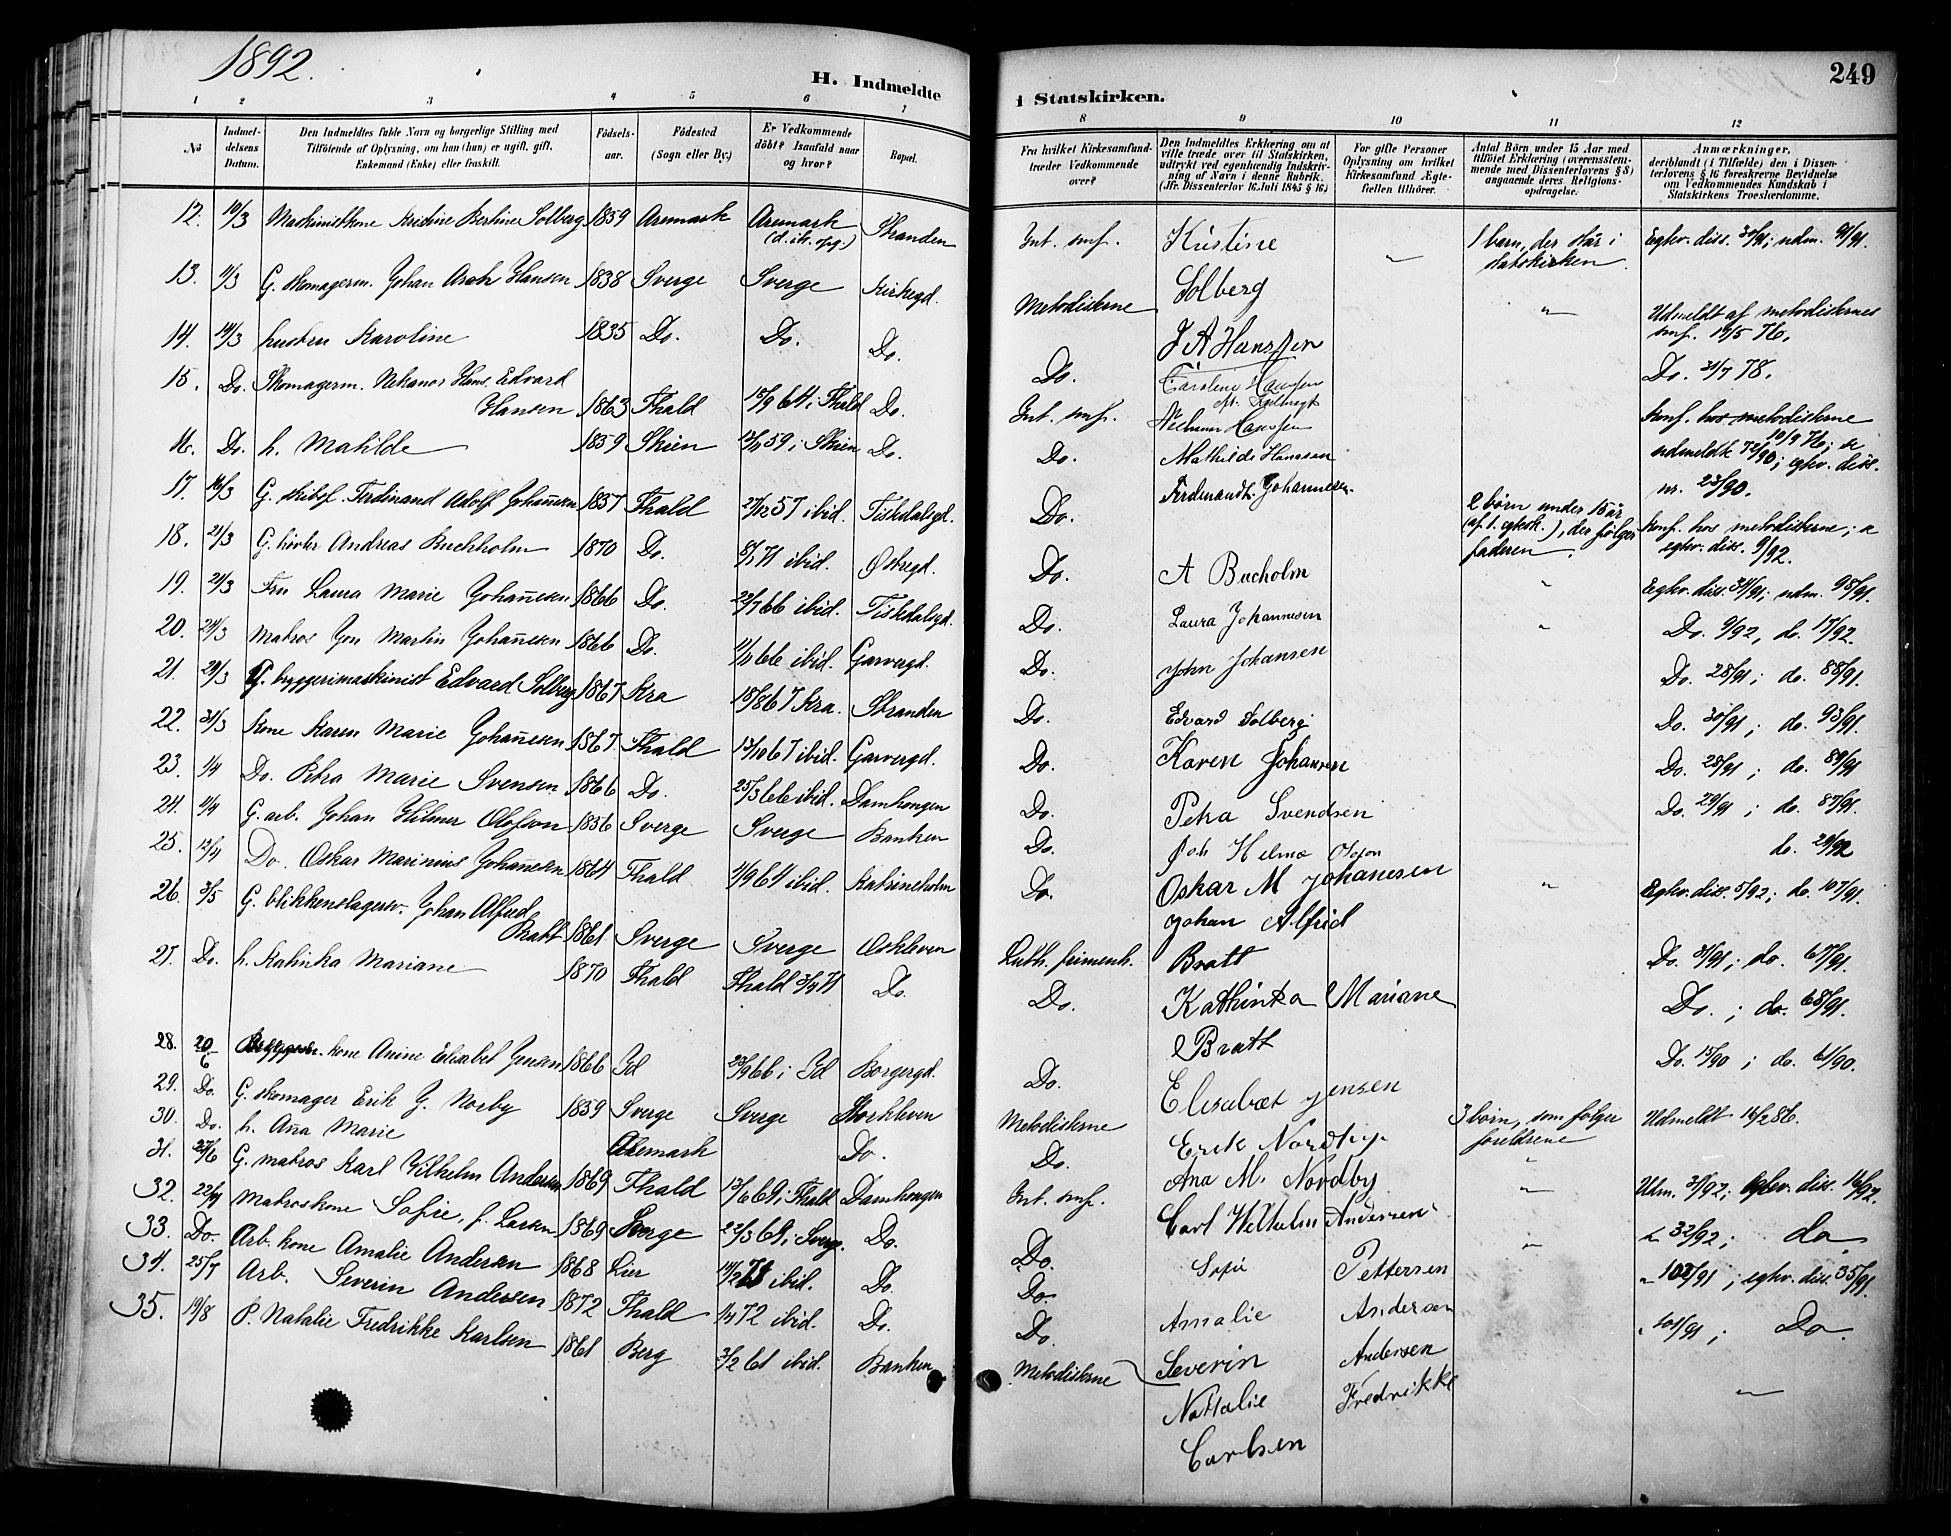 1892.
H. Indmeldte
1 2 3 4 5 6 7
No
Indmeldelsens Datum.
Den Indmeldtes fulde Navn og borgerlige Stilling med Tilföiende af Oplysning, om han (hun) er ugift, gift, Enkemand (Enke) eller fraskilt.
Födselsaar.
Födested (Sogn eller By.)
Er Vedkommende döbt? Isaafald naar og hvor?
Bopæl.
12. 10/3 Maskinistkone Kristine Bertine Solberg 1859 Aremark Aremark Stranden
13. 11/3 G. skomagerm. Johan Hansen 1838 Sverge Sverge Kirkegd.
14. 14/3 hustru Karoline 1835 Do. Do. Do.
15. Do. Skomagerm. Nikanor Hans Edvard
Hansen 1863 Fhald 18/9 64 i Fhald Do.
16. Do. h. Matilde 1859 Skien i Skien Do.
17. 16/3 G. skibsf. Ferdinand Adolf Johan̄esen 1857 Fhald 27/12 57 ibid. Tistedalsgd.
18. 21/3 G. Andreas Buchholm 1870 Do. 8/1 71 ibid. Østregd.
19. 21/3 Fru Laura Marie Johan̄esen 1866 Do. 22/7 66 ibid. Tistedalsgd.
20. 24/3 Matros Jon Martin Johan̄esen 1866 Do. ibid. Garvergd.
21. 29/3 G. bryggerimaskinist Edvard Solberg 1867 Kra 18/8 67 Kra. Stranden
22. 31/3 Kone Karen Marie Johan̄esen 1867 Fhald 13/10 67 ibid. Garvergd.
23. 1/4 Do. Petra Marie Svensen 1866 Do. 25/3 66 ibid. Damhengen
24. 4/4 G. arb. Johan Hilmer Olofson 1856 Sverge Sverge Banken
25. 12/4 Do. Oskar Marinius Johan̄esen 1864 Fhald 4/9 64 ibid. Katrineholm
26. 3/5 G. blikkenslagersv. Johan Alfred
Bratt 1861 Sverge Sverge Oskleven
27. Do. h. Katinka Mariane 1870 Fhald Fhald 3/4 71 Do.
28. 20/6 kone Anine Elisabet Jensen 1866 Id i Id Borgergd.
29. Do. G. skomager Erik J. Norby 1859 Sverge Sverge
30. Do. h. An̄a Marie Aremark Do.
31. 27/6 G. matros Karl Vilhelm Andersen 1869 Fhald 13/6 69 i Fhald Damhengen
32. 22/7 Matroskone Sofie, f. Larsen 1869 Sverge 22/3 69 i Sverge. Do.
33. Do. Arb. kone Amalie Andersen 1868 Lier ibid. Do.
34. 25/7 Arb. Severin Andersen 1872 Fhald 1/4 72 ibid. Do.
35. 19/8 P. Natalie Fredrikke Karlsen 1861 Berg 3/2 61 ibid. Banken
i Statskirken.
249
8 9 10 11 12
Fra hvilket Kirkesamfund træder Vedkommende over?
Den Indmeldtes Erklæring om at ville træde over til Statskirken, udtrykt ved egenhændig Indskrivning af Navn i denne Rubrik. (Jfr. Dissenterlov 16 Juli 1845 § 16)
For gifte Personer Oplysning om hvilket Kirkesamfund Ægtefællen tilhörer.
Antal Börn under 15 Aar med tilföiet Erklæring (overensstemmende med Dissenterlovens § 8) angaaende deres Religionsopdragelse.
Anmærkninger, deriblandt (i Tilfælde) den i Dissenterlovens § 16 foreskrevne Bevidnelse om Vedkommendes Kundskab i Statskirkens Troeslærdomme.
Int. smf. Kristine Solberg 1 barn, der står i statskirken. Eghv. diss. 30/91; udm. 91/91.
Metodisterne J A Hanssen Udmeldt af metodisternes smf. 19/5 76.
Do. Caroline Hanssen Do. 31/7 78.
Int. smf. Hanssen Konf. hos metodisterne
Do. Mathilde Hanssen udmeldt 72/90; eghv. diss. nr. 23/90.
Do. Ferdinandt. Johannesen. 2 børn under 15 år (af 1. egtesk.), der følger faderen. Konf. hos metodisterne; eghv. diss. 9/92.
Do. A Bucholm Eghv. diss. 34/91; udm. 98/91.
Do. Laura Johannesen Do. 9/92, do. 17/92.
Do. John Johansen Do. 28/91; do. 88/91.
Do. Edvard Solberg Do. 30/91; do. 93/91.
Do. Karen Johansen Do. 28/91; do. 89/91
Do. Petra Svendsen Do. 29/91; do. 87/91.
Do. Joh Helmer Olsson do. 29/92
Do. Oskar M Johanesen Eghv. diss. 5/92; do. 107/91.
Luth. frimenh. Johan Alfrid Bratt Do. 31/91; do. 67/91.
Do. Kathinka Mariane Bratt Do.; do. 68/91.
Do. Elisabet Jensen Do. 15/90; do. 61/90.
Metodisterne Erik Nordby 3 børn, som følger foreldrene Udmeldt 16/2 86.
Do. Ana M. Nordby
Int. smf. Carl Wilhelm Andersen Udm. 31/92; Eghv. diss. 16/92.
Do. Sofie Pettersen 32/92; do
Do. Amalie Andersen 102/91; eghv. diss. 35/91.
Do. Severin Andersen 101/91; Do.
Metodisterne Nathalie Fredrikke Carlsen